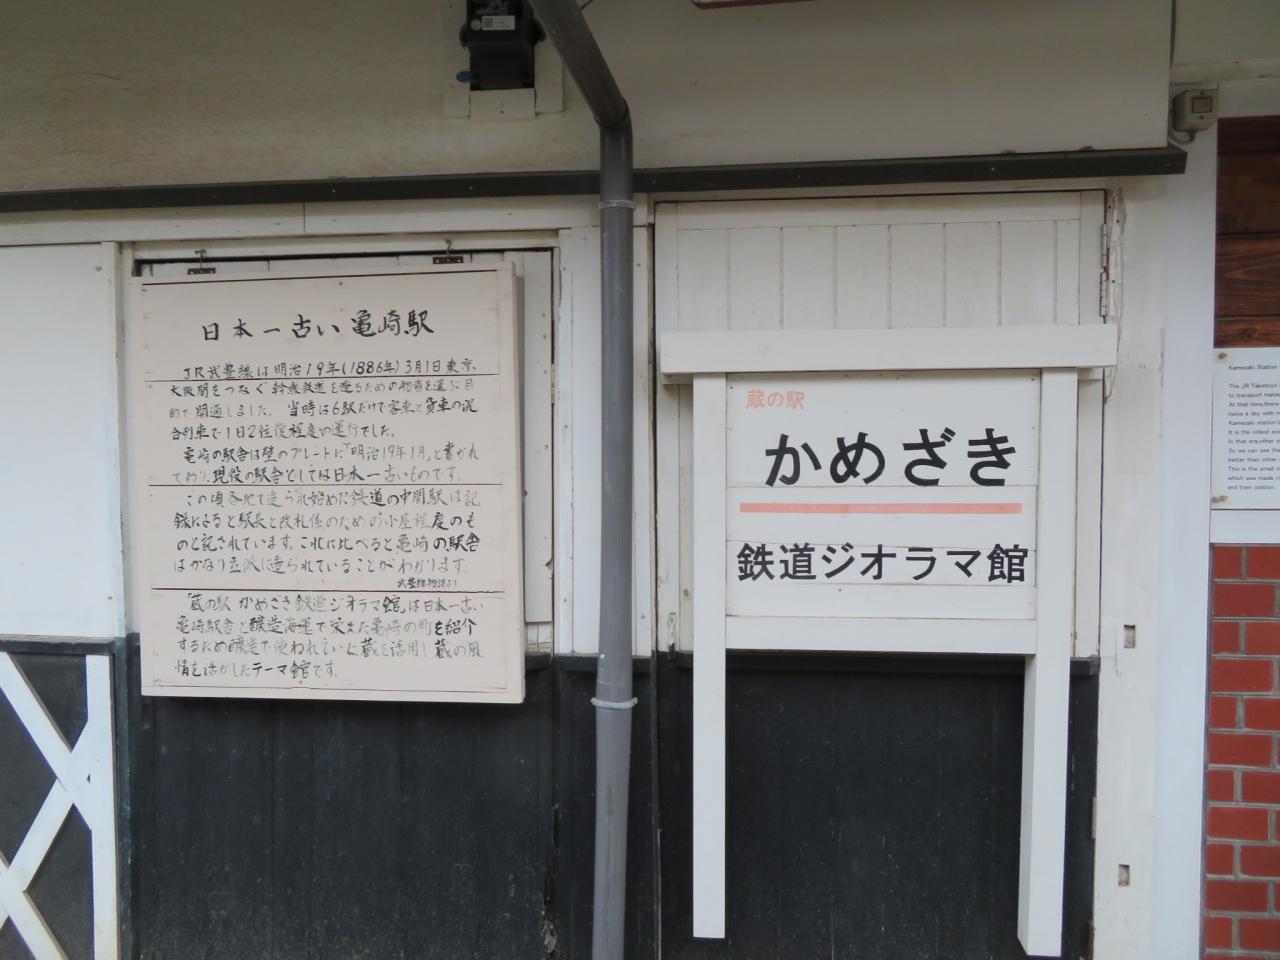 日本一古い亀崎駅
JR武豊線は明治19年(1886年)3月1日東京、
大阪間をつなぐ幹線鉄道を造るための物資を運ぶ目
的で開通しました。当時は6駅だけで客車と貨車の混
合列車で1日2往復程度の運行でした。
亀崎の駅舎は壁のプレートに「明治19年1月」と書かれ
ており、現役の駅舎としては日本一古いものです。
この頃各地で造られ始めた鉄道の中間駅は記
録によると駅長と改札係のための小屋程度のも
のと記されています。これに比べると亀崎の駅舎
はかなり立派に造られていることがわかります。
武豊線物語より
「蔵の駅 かめざき鉄道ジオラマ館」は日本一古い
亀崎駅舎と醸造海運で栄えた亀崎の町を紹介
するため醸造で使われていた蔵を活用し蔵の風
情を活かしたテーマ館です。
蔵の駅
かめざき
鉄道ジオラマ館
Kamezaki Station
The JR Taketoyo
to transport mate
At that time,there
twice a day with
Kamezaki station's
It is the oldest
In that era,other
So we can see tha
better than other
This is the small
which was made
and train station.